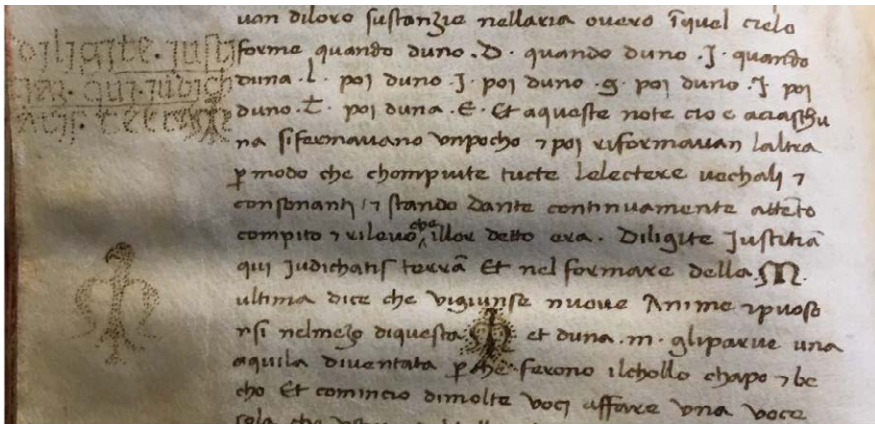 diligite. justi
tiaz. qui. iudich
atis. terra
uan diloro sustanzie nellaria ouero ĩquel cielo
forme quando duno .D. quando duno .J. quando
duna .l. poi duno .J. poi duno .g. poi duno .J. poi
duno .t. poi duna .E. Et aqueste note cio e aciaschu
na siformauano vnpocho ⁊ poi riformauan laltra
ꝑ modo che chompiute tucte Lelectere uochali ⁊
consonanti / ⁊ stando Dante continuamente attẽto
compito ⁊ rileuo che illor detto era. Diligite Justitiã
qui Judichatis terrã Et nel formare della M.
ultima dice che vigiunse nuoue Anime ⁊puoso
rsi nelmezo diquesta M et duna .m. gliparue una
aquila diuentata ꝑ che ferono ilchollo chapo ⁊ be
cho Et comincio dimolte voci affare vna voce
sola che